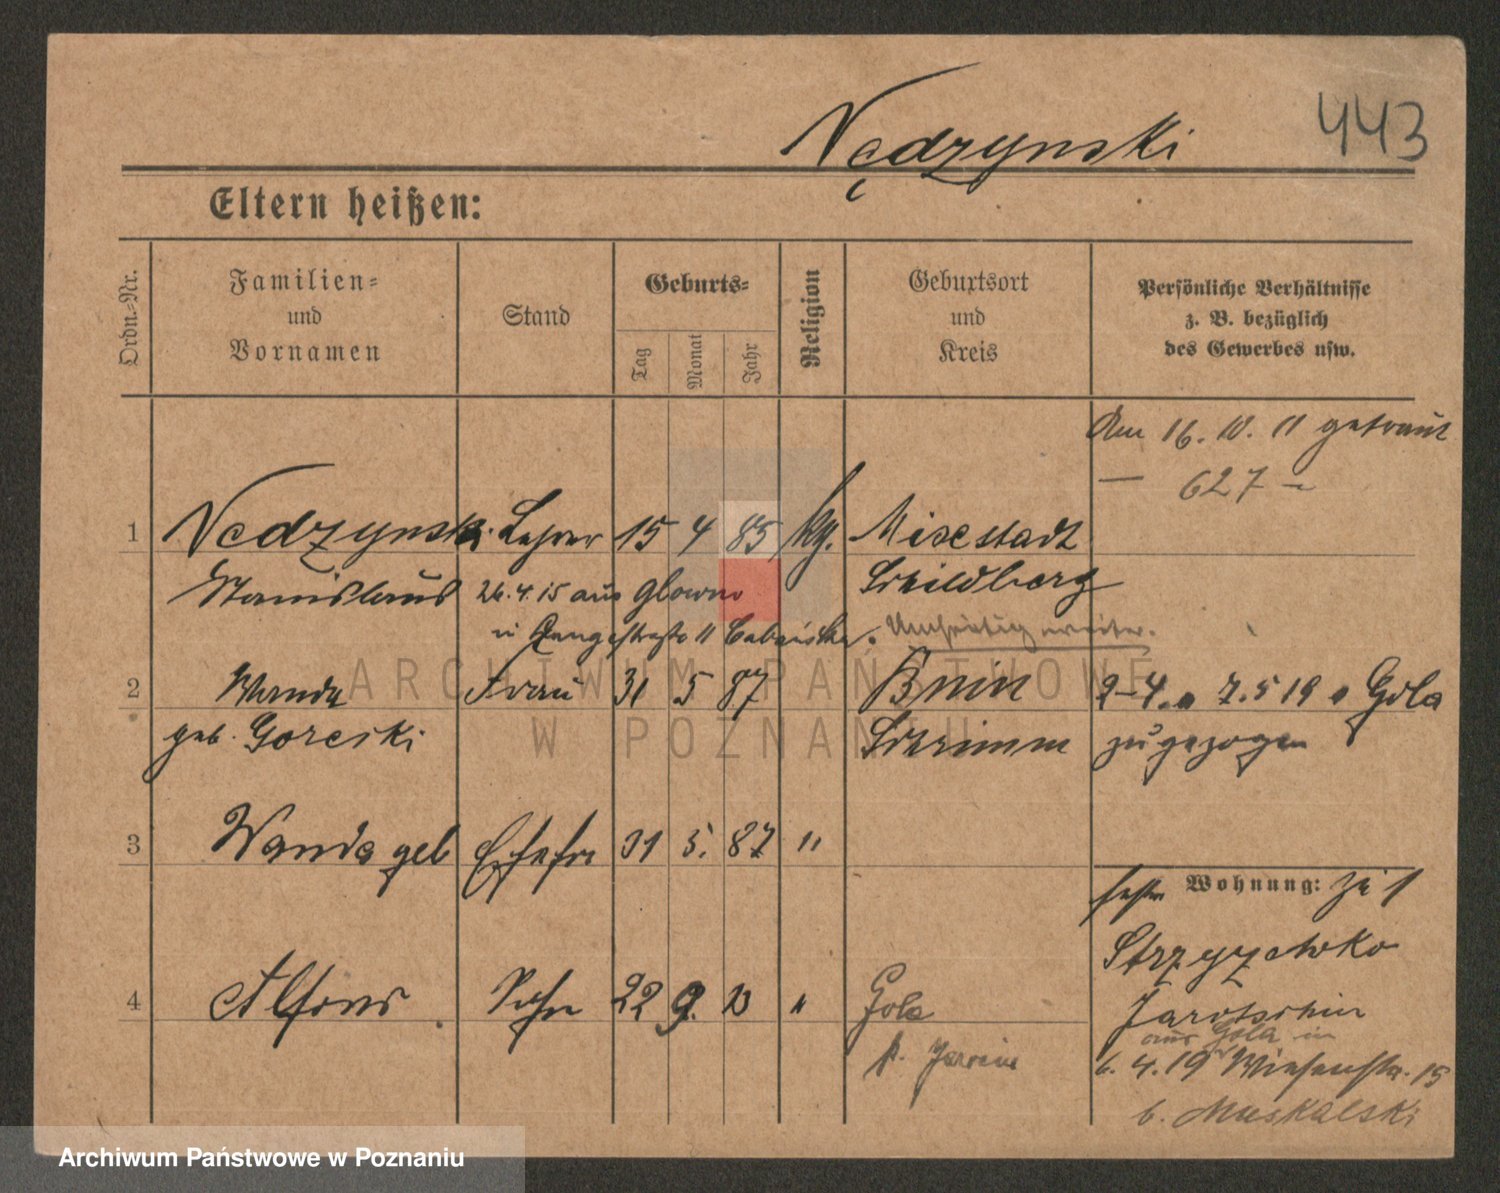 443
Nędzynski
Eltern heißen:
Ordn.-Nr.
Familien-
und
Vornamen
Stand
Geburts-
Tag
Monat
Jahr
Religion
Geburtsort
und
Kreis
Persönliche Verhältnisse
z. B. bezüglich
des Gewerbes usw.
Am 16. 10. 11 getraut
— 627 —
1 Nedzynski Lehrer 15 4 85 kg. Mixstadt
Stanislaus 26.4.15 aus Glowno Schildberg
in 11
2 Wanda Frau 31 5 87 Bnin 2-4. a 7.5 19 Gola
geb. Gorecki Schrimm zugezogen
3 Wanda geb Ehefr 31 5. 87 "
Wohnung: zu 1
Strzyzewko
4 Alfons Sohn 22 9. 13 " Gola
Jarotschin
aus Gola in
6. 4. 19 Wiesenstr. 15
b. Muskalski
ARCHIWUM PAŃSTWOWE
W POZNANIU
Archiwum Państwowe w Poznaniu